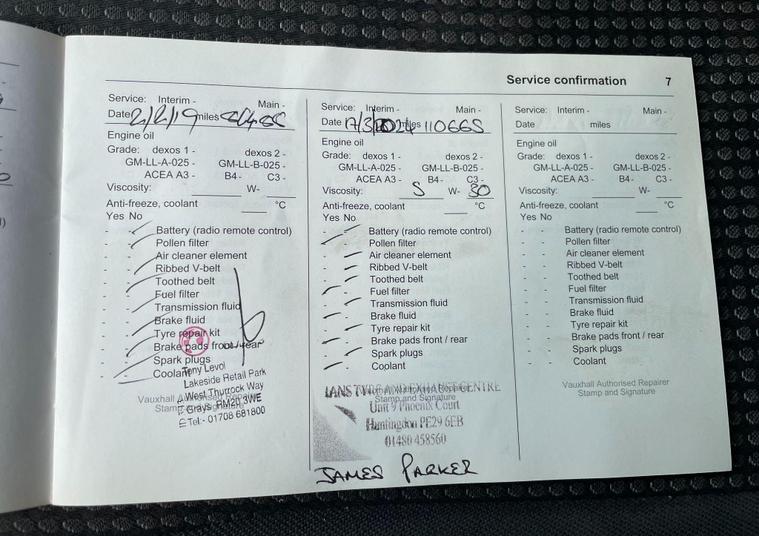 Service confirmation 7
Service: Interim - Main -
Date 2/2/19 miles
Engine oil
Grade: dexos 1 - dexos 2 -
GM-LL-A-025 - GM-LL-B-025 -
ACEA A3 - B4 - C3 -
Viscosity: W-
Anti-freeze, coolant °C
Yes No
- - Battery (radio remote control)
- - Pollen filter
- - Air cleaner element
- - Ribbed V-belt
- - Toothed belt
- - Fuel filter
- - Transmission fluid
- - Brake fluid
- - Tyre repair kit
- - Brake pads front / rear
- - Spark plugs
- - Coolant
Vauxhall Authorised Repairer
Stamp and Signature
Lakeside Retail Park
West Thurrock Way
Grays, RM20 3WE
Tel:- 01708 681800
Service: Interim - Main -
Date miles 110665
Engine oil
Grade: dexos 1 - dexos 2 -
GM-LL-A-025 - GM-LL-B-025 -
ACEA A3 - B4 - C3 -
Viscosity: 5 W- 30
Anti-freeze, coolant °C
Yes No
- - Battery (radio remote control)
- - Pollen filter
- - Air cleaner element
- - Ribbed V-belt
- - Toothed belt
- - Fuel filter
- - Transmission fluid
- - Brake fluid
- - Tyre repair kit
- - Brake pads front / rear
- - Spark plugs
- - Coolant
Stamp and Signature
IANS TYRE AND EXHAUST CENTRE
Unit 9 Phoenix Court
Huntingdon PE29 6EB
01480 458560
JAMES PARKER
Service: Interim - Main -
Date miles
Engine oil
Grade: dexos 1 - dexos 2 -
GM-LL-A-025 - GM-LL-B-025 -
ACEA A3 - B4 - C3 -
Viscosity: W-
Anti-freeze, coolant °C
Yes No
- - Battery (radio remote control)
- - Pollen filter
- - Air cleaner element
- - Ribbed V-belt
- - Toothed belt
- - Fuel filter
- - Transmission fluid
- - Brake fluid
- - Tyre repair kit
- - Brake pads front / rear
- - Spark plugs
- - Coolant
Vauxhall Authorised Repairer
Stamp and Signature